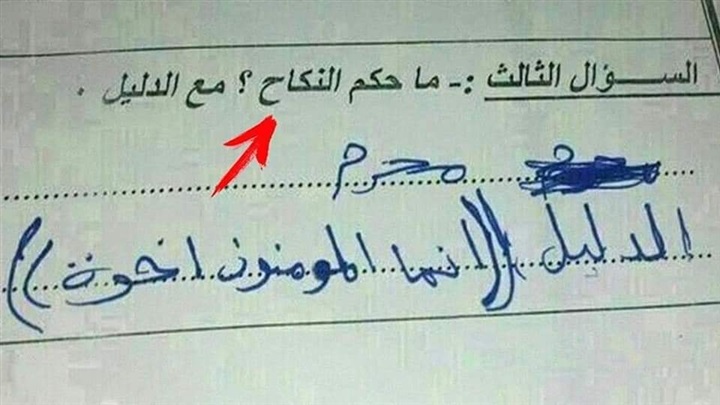 السؤال الثالث :- ما حكم النكاح ؟ مع الدليل .
محرم
الدليل ((انما المومنون اخوة))